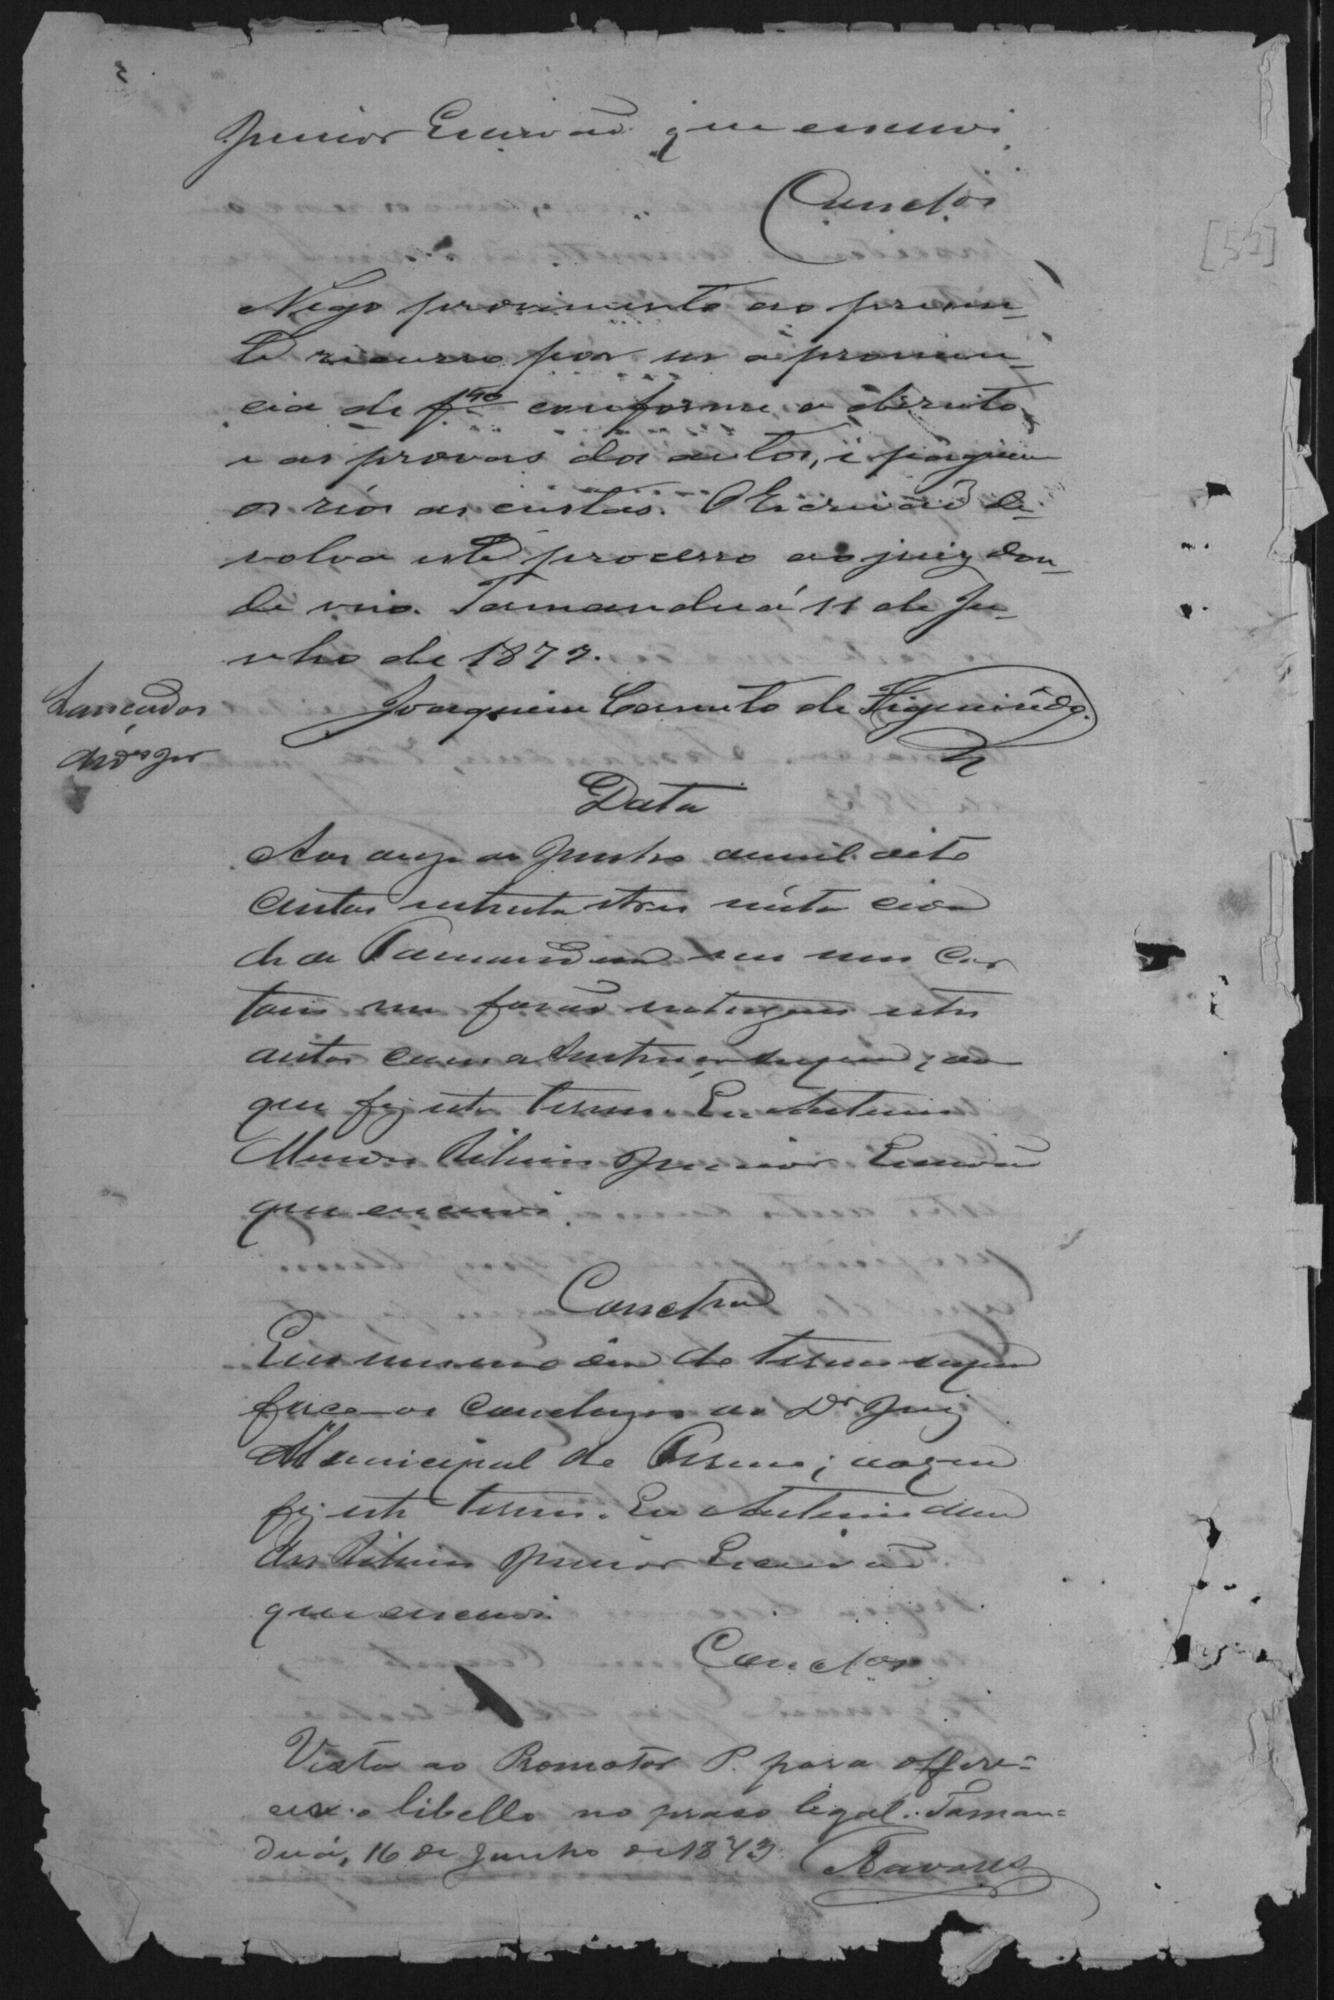 Junior Escrivaõ que escrevi
Conclos
Nego provimento ao presen-
te recurso por ser a pronun-
cia de f. conforme o direito
e as provas dos autos, e paguem
os réos as custas. O Escrivaõ de-
volva este processo ao juiz don-
de veio. Tamanduá 11 de Ju-
nho de 1873.
Joaquim Canuto de Figueirêdo.
Data
Aos onze de Junho demil oito
centos setenta etres nésta cida
de de Tamandua em meu Car
torio me foraõ entregues estes
autos com a Sentença supra; do
que fiz este termo. Eu Antonio
Mendes Ribeiro Junior Escrivaõ
que escrevi.
Conclsaõ
Em mesmo dia do termo supra
faco-os conclusos ao Dr Juiz
Municipal do Termo; do que
fiz este termo. Eu Antonio Men
des Ribeiro Junior Escrivaõ
que escrevi
Conclos
Vista ao Promotor P. para offere=
cer o libello no praso legal. Taman=
duá, 16 de Junho de 1873.
Tavares
[55]